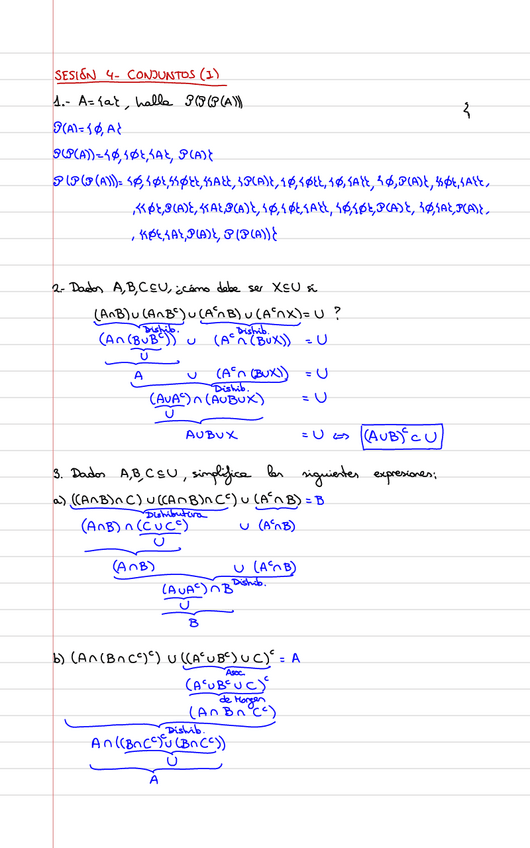 SESIÓN 4- CONJUNTOS (I)
1.- A={a}, halla P(P(P(A)))
{
P(A)={∅,A}
P(P(A))={∅,{∅},{A}, P(A)}
P(P(P(A)))= {∅,{∅},{{∅}},{{A}},{P(A)},{∅,{∅}},{∅,{A}},{∅,P(A)},{{∅},{A}},
,{{∅},P(A)},{{A},P(A)},{∅,{∅},{A}},{∅,{∅},P(A)},{∅,{A},P(A)},
,{{∅},{A},P(A)}, P(P(A))}
2- Dados A,B,C⊆U, ¿cómo debe ser X⊆U si
(A∩B)∪(A∩Bᶜ)∪(Aᶜ∩B)∪(Aᶜ∩X)=U ?
Distrib. Distrib.
(A∩(B∪Bᶜ)) ∪ (Aᶜ∩(B∪X)) = U
U
A ∪ (Aᶜ∩(B∪X)) = U
Distrib.
(A∪Aᶜ)∩(A∪B∪X) = U
U
A∪B∪X = U ⇔ (A∪B)ᶜ⊂U
3. Dados A,B,C⊆U, simplifica las siguientes expresiones:
a) ((A∩B)∩C)∪((A∩B)∩Cᶜ)∪(Aᶜ∩B)=B
Distributiva
(A∩B)∩(C∪Cᶜ) ∪ (Aᶜ∩B)
U
(A∩B) ∪ (Aᶜ∩B)
Distrib.
(A∪Aᶜ)∩B
U
B
b) (A∩(B∩Cᶜ)ᶜ)∪((Aᶜ∪Bᶜ)∪C)ᶜ=A
Asoc.
(Aᶜ∪Bᶜ∪C)ᶜ
de Morgan
(A∩B∩Cᶜ)
Distrib.
A∩((B∩Cᶜ)ᶜ∪(B∩Cᶜ))
U
A